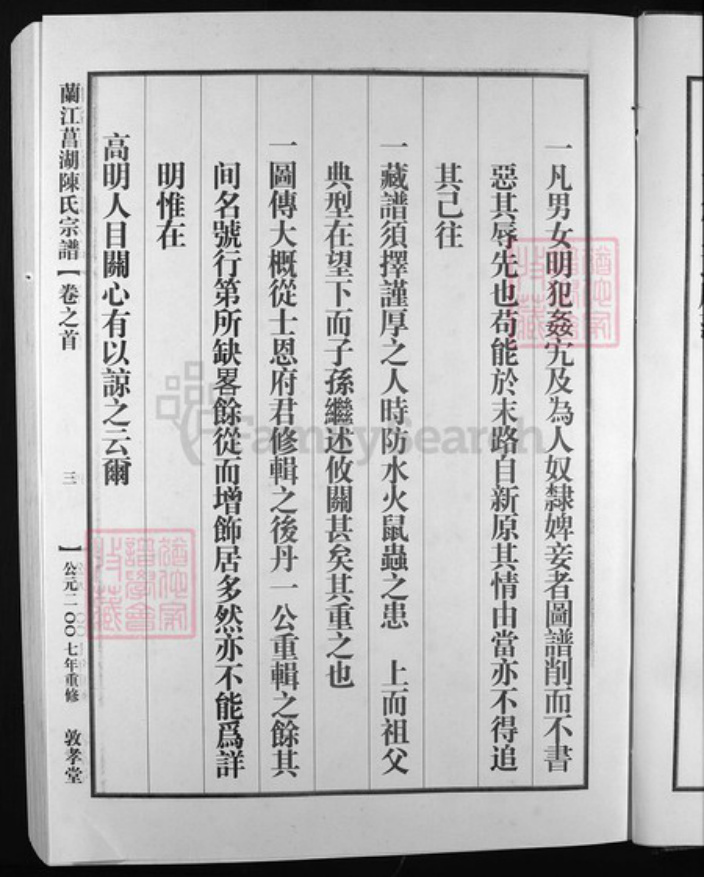 一凡男女明犯姦宄及為人奴隸婢妾者圖譜削而不書
惡其辱先也苟能於末路自新原其情由當亦不得追
其己往
一藏譜須擇謹厚之人時防水火鼠蟲之患　上而祖父
典型在望下而子孫繼述攸關甚矣其重之也
一圖傳大概從士恩府君修輯之後丹一公重輯之餘其
间名號行第所缺畧餘從而增飾居多然亦不能爲詳
明惟在
高明人目關心有以諒之云爾
蘭江菖湖陳氏宗譜【卷之首　三　】公元二〇〇七年重修　敦孝堂
FamilySearch